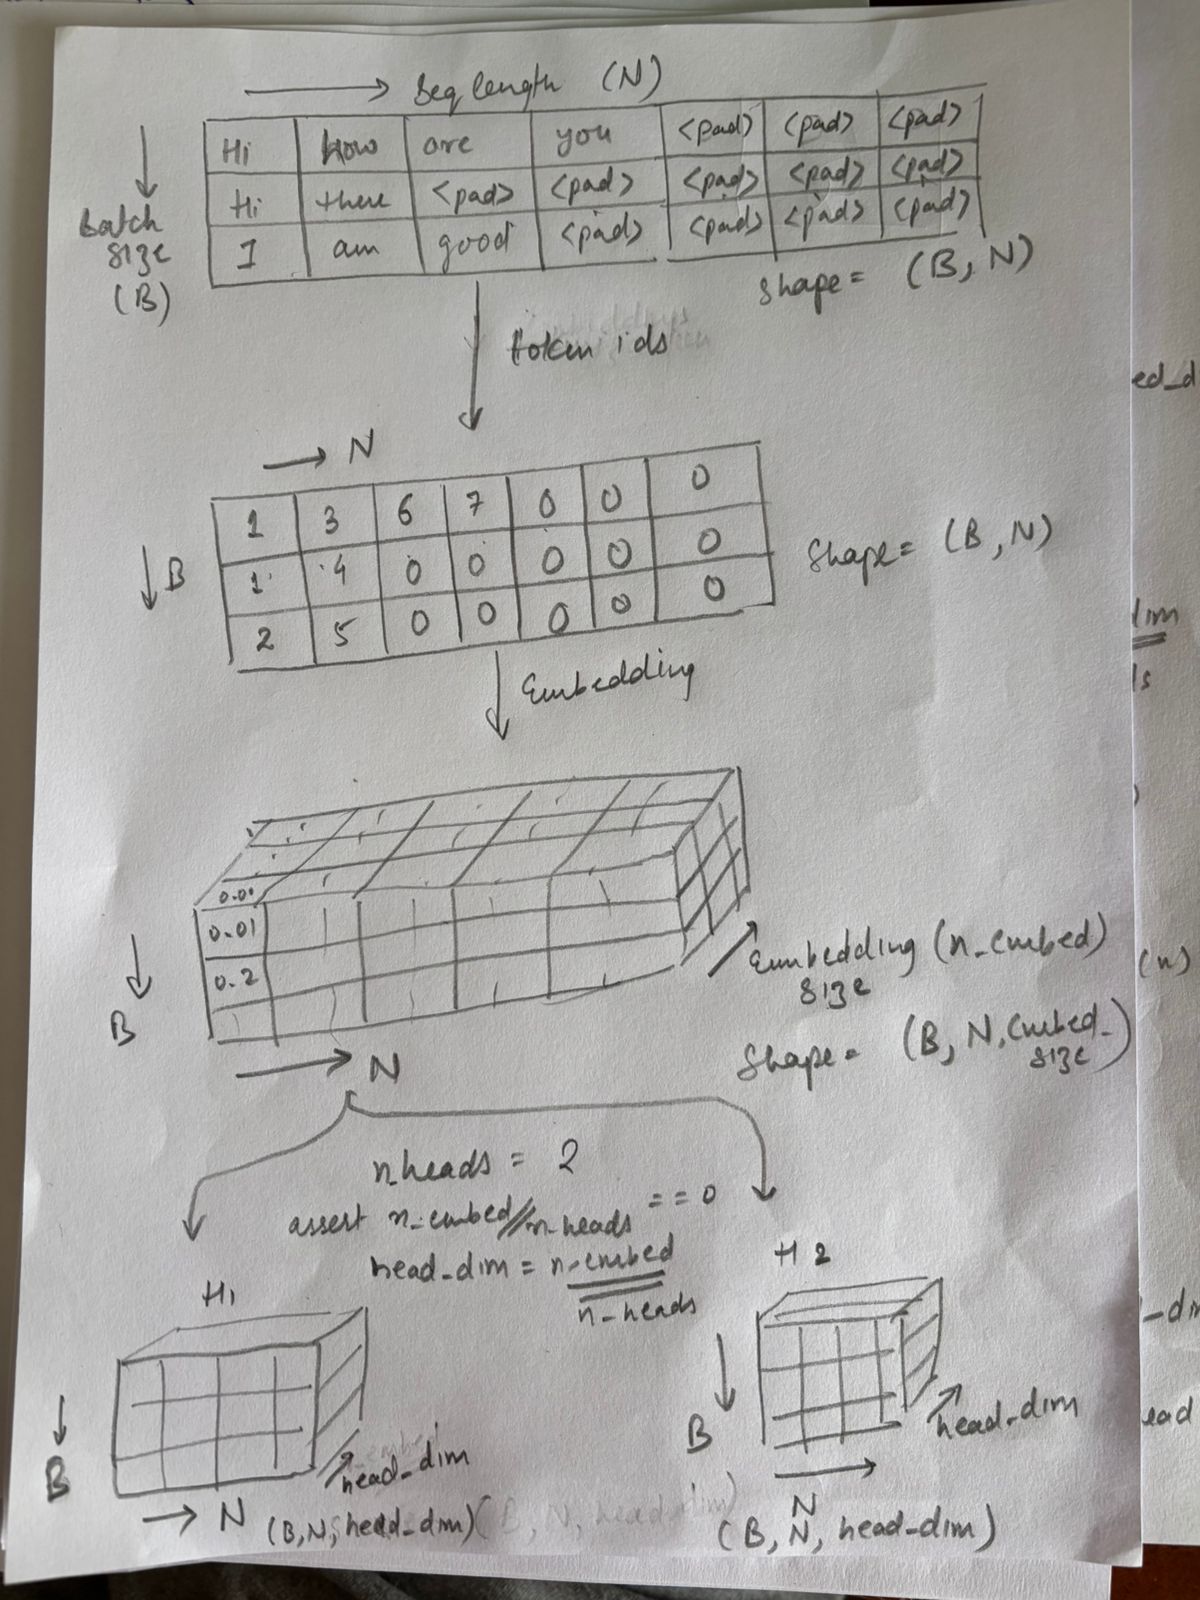 Seq length (N)
Hi how are you <pad> <pad> <pad>
Hi there <pad> <pad> <pad> <pad> <pad>
I am good <pad> <pad> <pad> <pad>
Batch
size
(B)
Shape = (B, N)
token ids
N
1 3 6 7 0 0 0
1 4 0 0 0 0 0
2 5 0 0 0 0 0
B
Shape = (B, N)
Embedding
0.01
0.01
0.2
B
N
Embedding (n_embed)
size
Shape = (B, N, embed_
size)
n_heads = 2
assert n_embed//n_heads == 0
head_dim = n_embed
n_heads
H1
B
N
head_dim
(B, N, head_dim)
H2
B
N
head_dim
(B, N, head_dim)
ed_d
dim
ls
(n)
_dim
ead